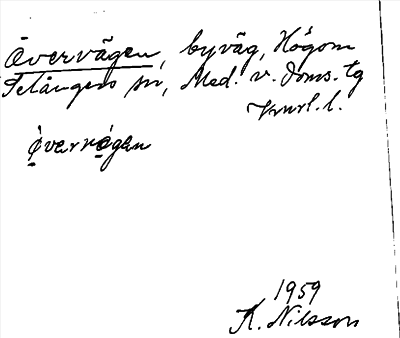 Övervägen, byväg, Högom
Selångers sn, Med. v. doms. tg
Vnrl. l.
Övervägen
1959
K. Nilsson